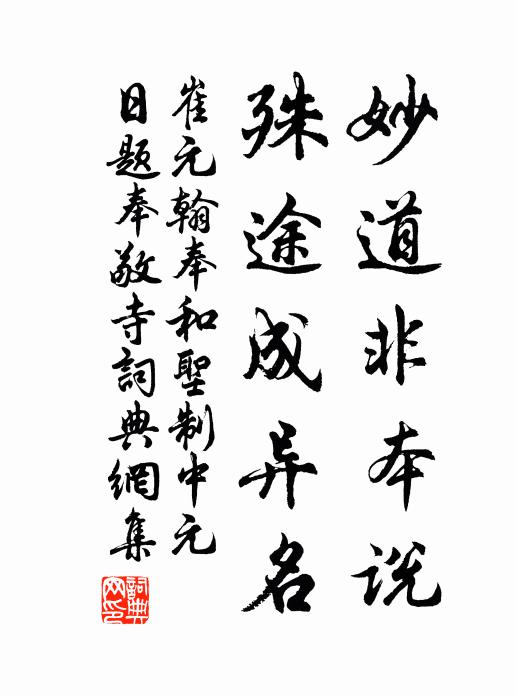 妙道非本说
殊途成异名
崔元翰奉和聖制中元
日题奉敬寺詞典網集
詞典网印